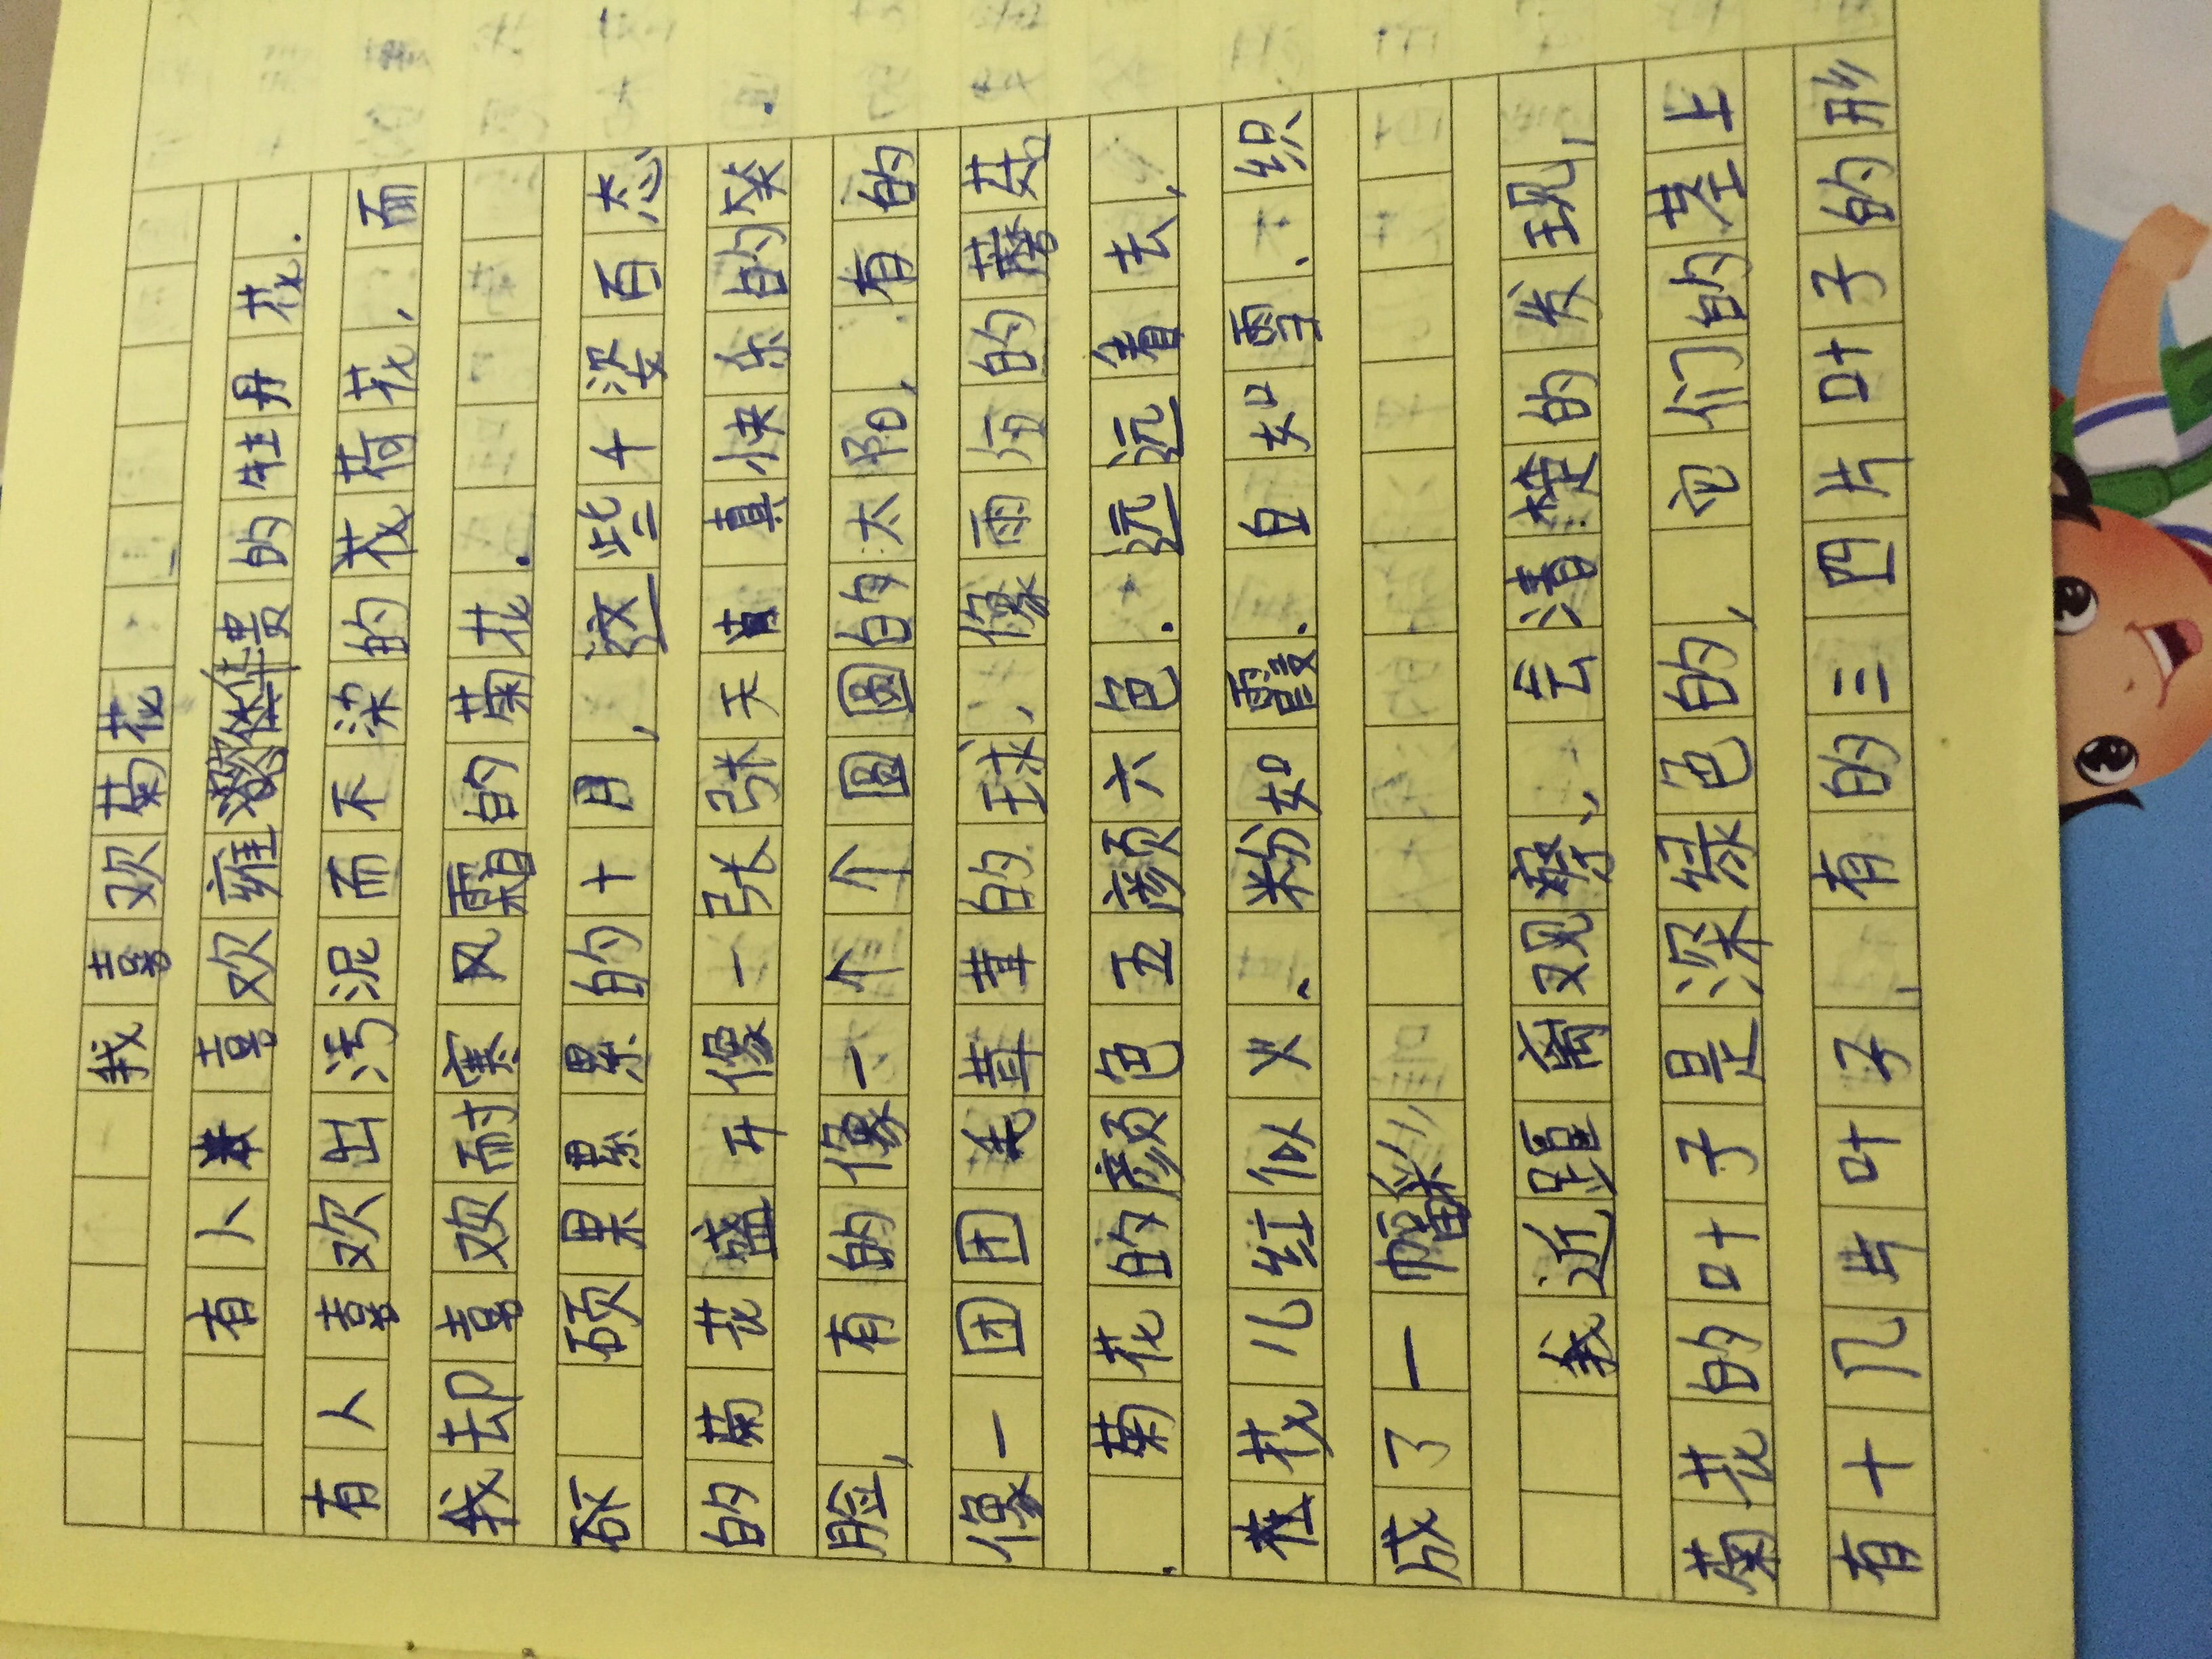 我喜欢菊花
有人喜欢雍华贵的牡丹花.
有人喜欢出污泥而不染的花荷花,而
我却喜欢耐寒风霜的菊花.
硕果累累的十月,这些千姿百态
的菊花盛开像一张张天真快乐的笑
脸,有的像一个个圆圆的太阳,有的
像一团团毛茸茸的球,像雨后的蘑菇
.菊花的颜色五颜六色.远远看去,
花儿红似火、粉如霞.白如雪、织
成了一幅彩
我近距离观察、会清楚的发现,
菊花的叶子是深绿色的,它们的茎上
有十几片叶子,有的三四片叶子的形